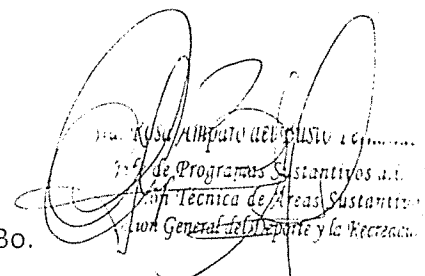 Rosa Amparo del Busto
de Programas Sustantivos a.i.
Técnica de Áreas Sustantiv
General del Deporte y la Recreac
Bo.